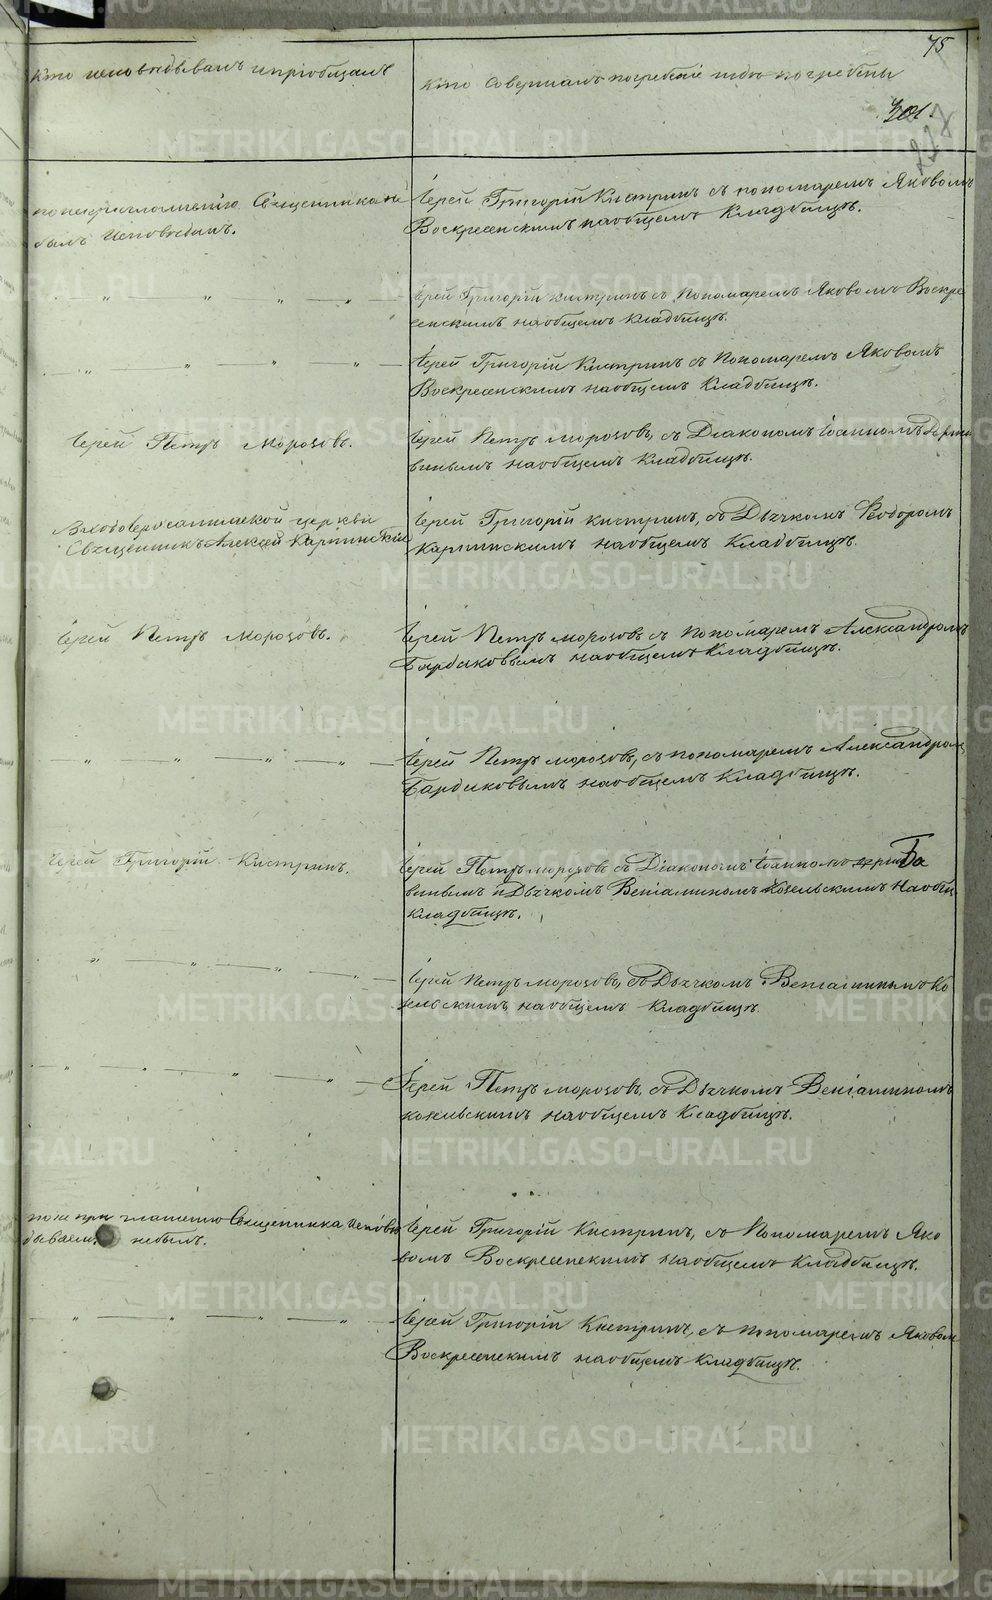 75
Кто исповѣдывалъ и пріобщалъ
Кто совершалъ погребеніе и гдѣ погребены
301.
по неприглашенію Священника не
былъ исповѣданъ.
Іерей Григорій Кистринъ съ пономаремъ Яковомъ
Воскресенскимъ на общемъ кладбищѣ.
" " " "
Іерей Григорій Кистринъ съ Пономаремъ Яковомъ Воскре
сенскимъ на общемъ кладбищѣ.
" " " "
Іерей Григорій Кистринъ съ Пономаремъ Яковомъ
Воскресенскимъ на общемъ кладбищѣ.
Іерей Петръ Морозовъ.
Іерей Петръ Морозовъ, съ Діакономъ Іоанномъ
на общемъ кладбищѣ.
Входоіерусалимской церкви
Священникъ Алексѣй Карпинскій
Іерей Григорій Кистринъ, съ Дьячкомъ Ѳеодоромъ
Карпинскимъ на общемъ кладбищѣ.
Іерей Петръ Морозовъ.
Іерей Петръ Морозовъ съ пономаремъ Александромъ
Бардаковымъ на общемъ кладбищѣ.
" " " "
Іерей Петръ Морозовъ, съ пономаремъ Александромъ
Бардаковымъ на общемъ кладбищѣ.
Іерей Григорій Кистринъ.
Іерей Петръ Морозовъ съ Діакономъ Іоанномъ
и Дьячкомъ Веніаминомъ Козельскимъ на общ
кладбищѣ.
" " " "
Іерей Петръ Морозовъ, съ Дьячкомъ Веніаминомъ Ко
зельскимъ на общемъ кладбищѣ.
" " " "
Іерей Петръ Морозовъ, съ Дьячкомъ Веніаминомъ
Козельскимъ на общемъ кладбищѣ.
по не приглашенію Священника исповѣ
дываемъ небылъ.
Іерей Григорій Кистринъ, съ Пономаремъ Яко
вомъ Воскресенскимъ на общемъ кладбищѣ.
" " " " "
Іерей Григорій Кистринъ, съ пономаремъ Яковом
Воскресенскимъ на общемъ кладбищѣ.
METRIKI.GASO-URAL.RU